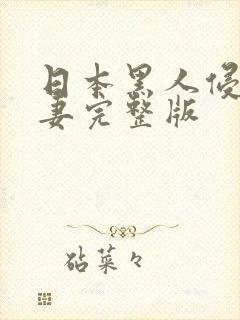 日本黑人侵
妻完整版
砧菜々